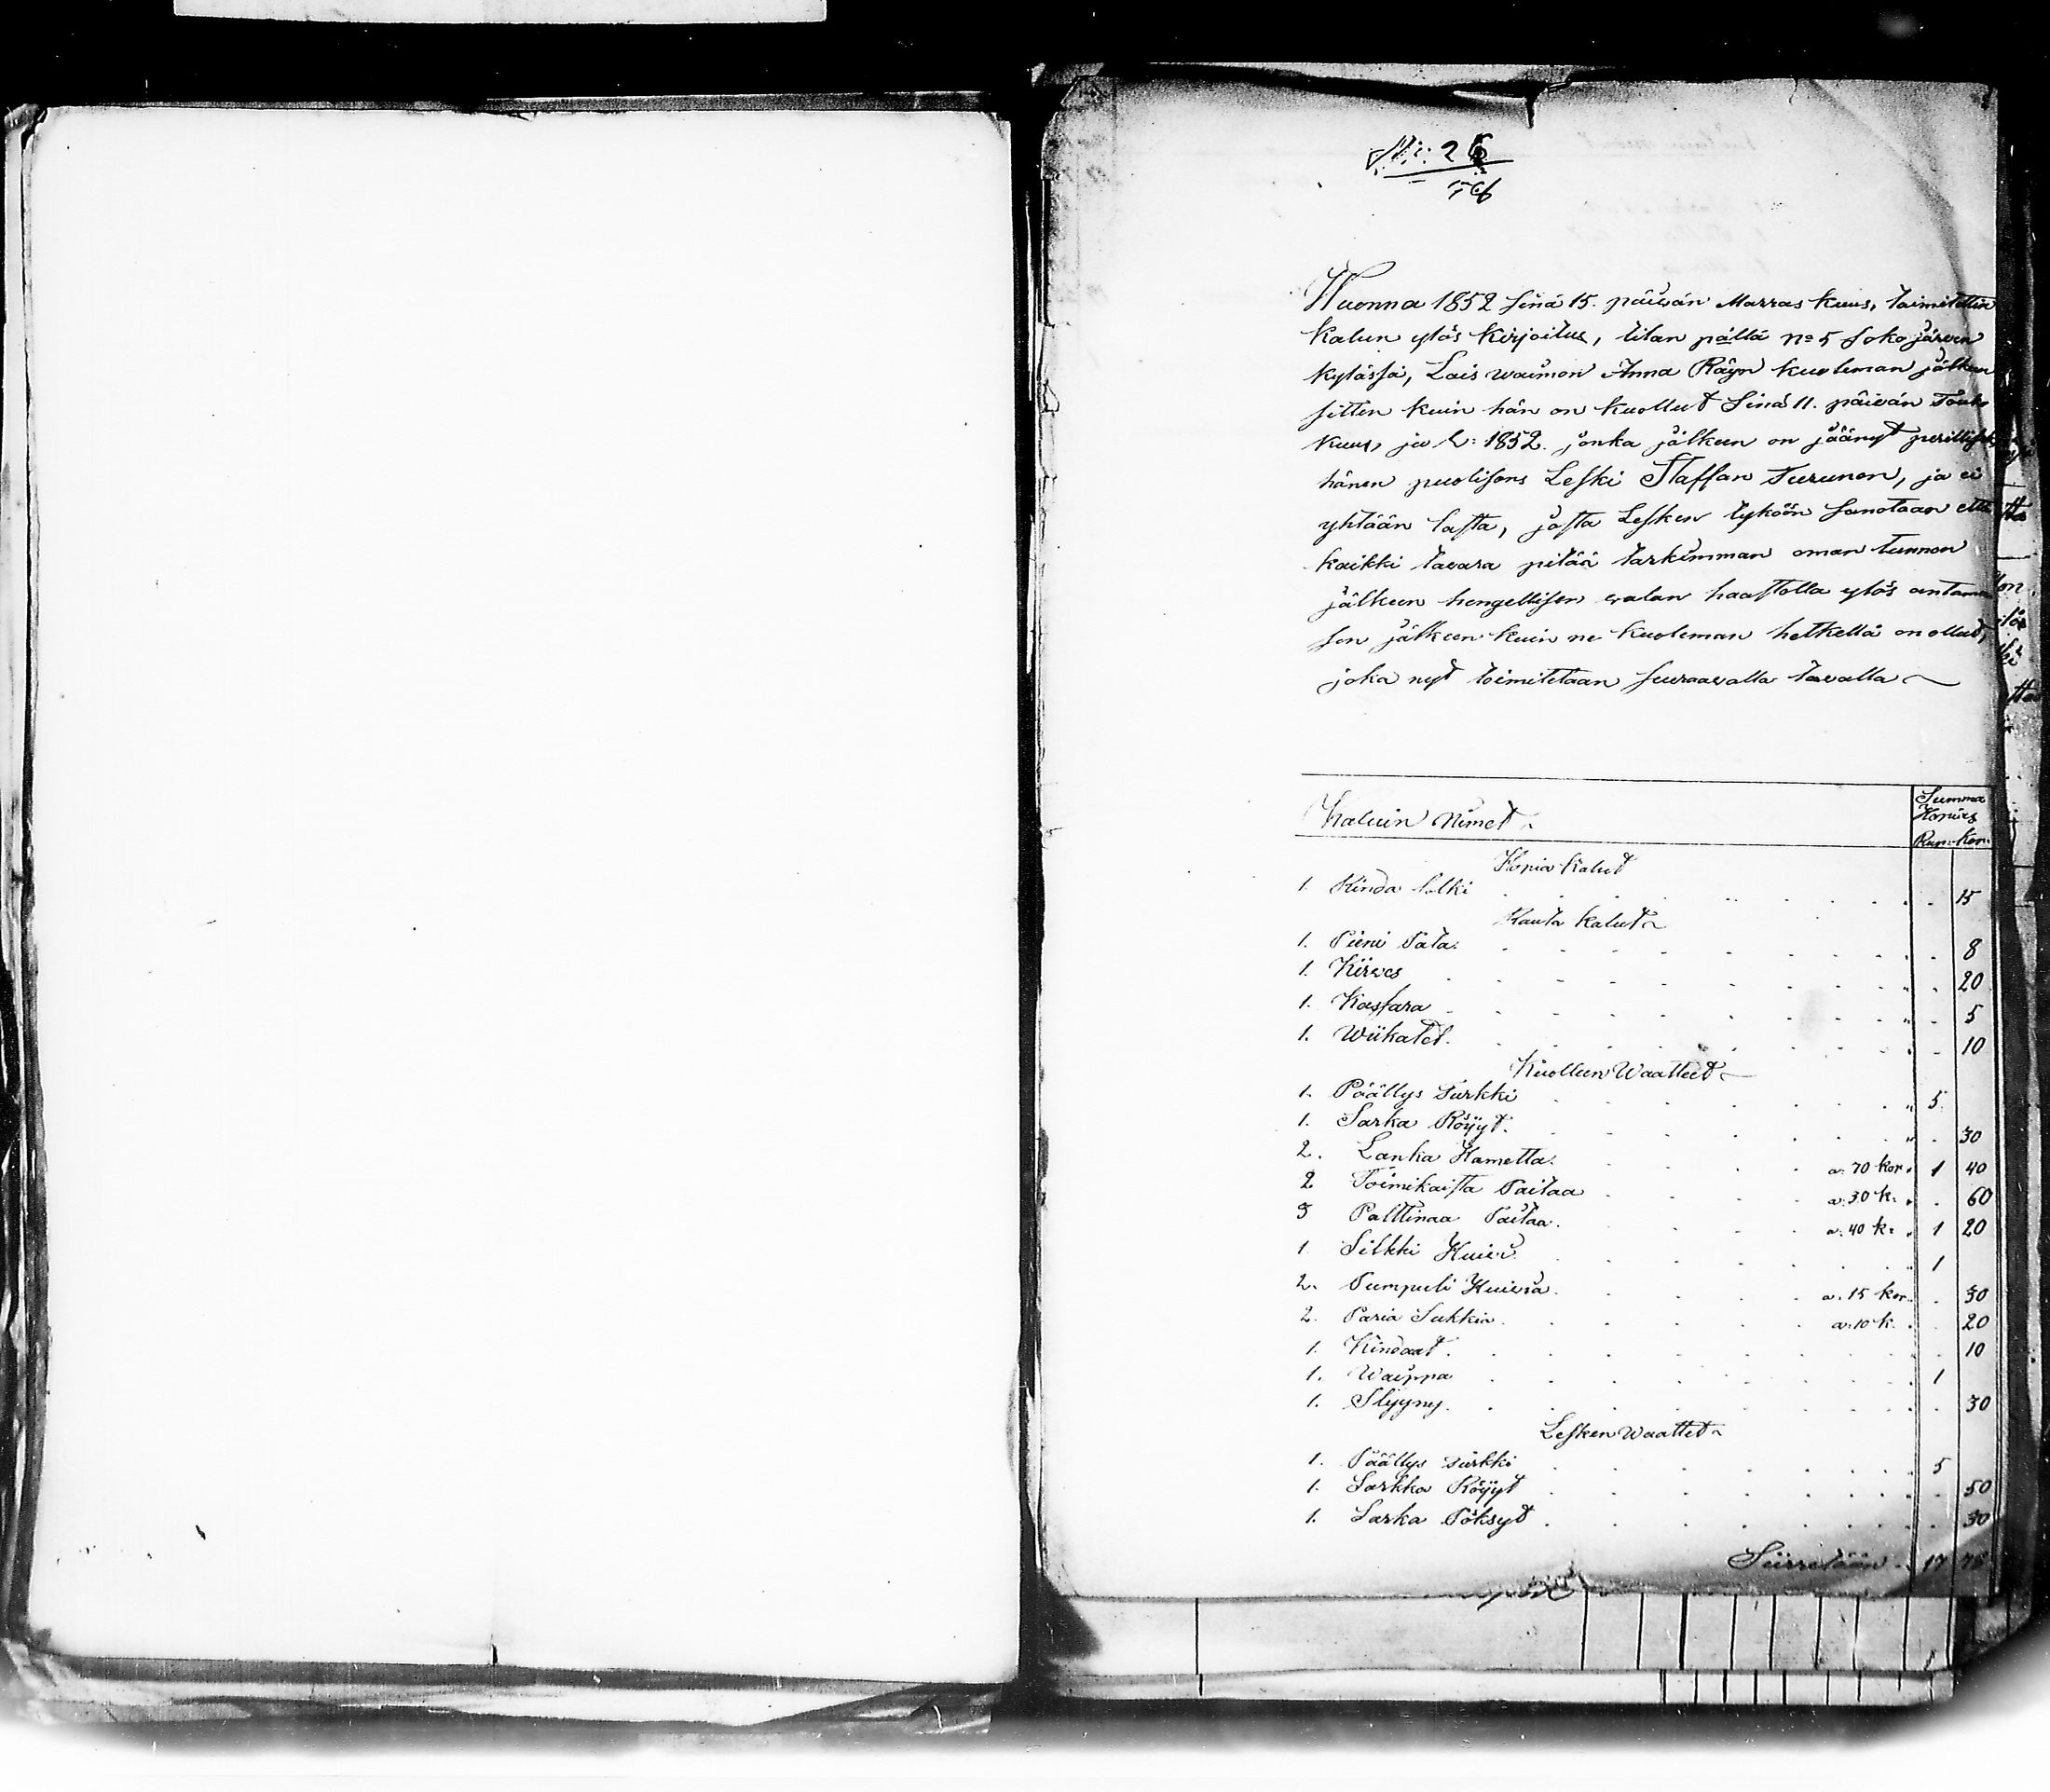 No: 26
Wuonna 1852 Sinä 15. päivän Marras kuus, toimitettin
Kalun ylös kirjoitus, tilan päällä No 5 Sokojärven
kylässä, Lais waimon Anna Räyn kuoleman jälken
sitten kuin hän on kuollut Sinä 11. päivän Touko
kuus, ja 1852. jonka jälkeen on jäänyt perilliseks
hänen puolisons Leski Staffan Turunen, ja ei
yhtään lasta, josta Lesken tyköön sanotaan että
kaikki tavara pitää tarkimman oman tunnon
jälkeen hengellisen walan haastolla ylös antaman
sen jälkeen kuin ne kuoleman hetkellä on ollut,
joka nyt toimitetaan seuraavalla tavalla
Kaluin Nimet. Summa Hopias
Rup. Kop.
Hopia kalut
1. Rinda Solki 15
Rauta kalut
1. Pieni Pata. 8
1. Kirves 20
1. Kassara 5
1. Wiikatet. 10
Kuolleen Waatteet
1. Päällys Turkki 5
1. Sarka Röijyt. 30
2. Lanka Hametta. a. 70 kop. 1 40
2 Toimikaista Paitaa a. 30 k. 60
3 Palttinaa Paitaa. a. 40 k. 1 20
1. Silkki Huivi 1
2. Pumpuli Huivia. a. 15 kop. 30
2. Paria Sukkia. a. 10 k. 20
1. Kindaat. 10
1. Waippa 1
1. Slyyny. 30
Lesken Waattet
1. Päällys turkki 5
1. Sarkka Röijyt 50
1. Sarka Pöksyt. 30
Siirretään 17 78